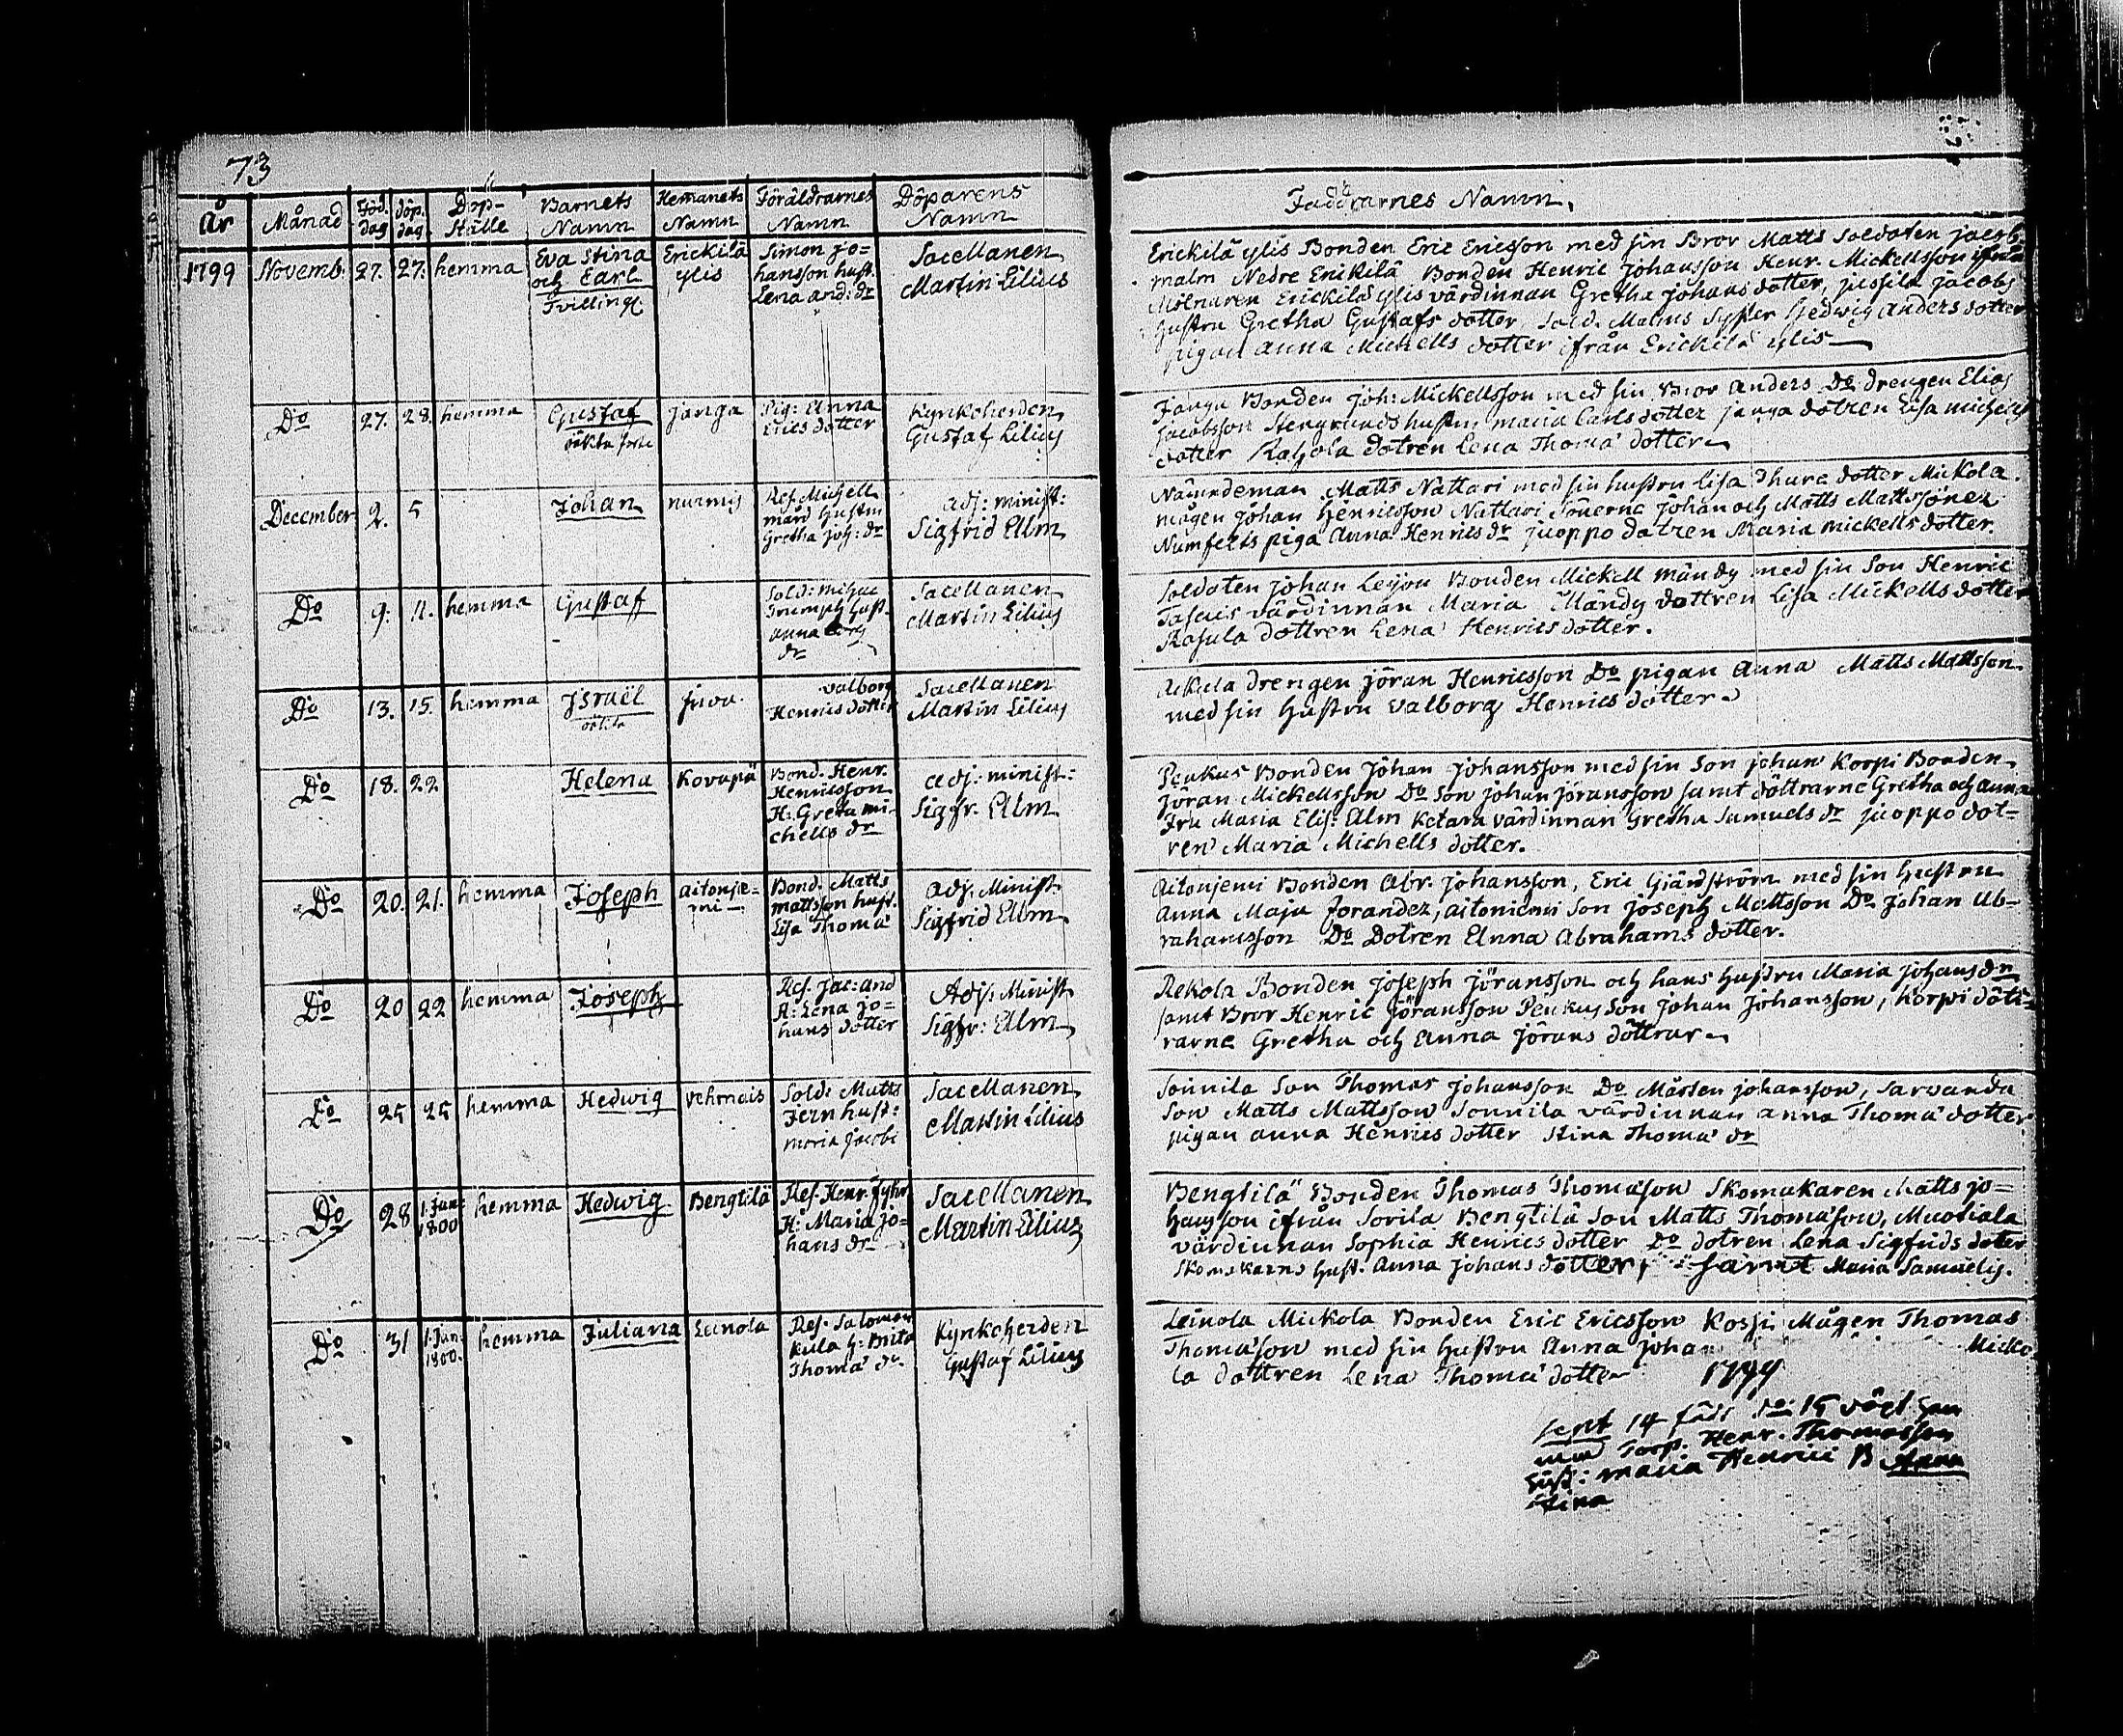 73
År Månad Föd. dag döp. dag Döp-ställe Barnets Namn Hemanets Namn Föräldrarnes Namn Döparens Namn
Faddrarnes Namn.
1799 Novemb. 27. 27. hemma
Eva Stina
och Carl
Tvilling.
Erickilä
ylis
Simon Jo=
hansson hust.
Lena And: dr
Sacellanen
Martin Lilius
Erickilä ylis Bonden Eric Ericsson med sin Bror Matts Soldaten Jacob
malm Nedre Erickilä Bonden Henric Johansson Henr. Mickellsson ifrån
Mölnaren Erickilä ylis värdinnan Gretha Johans dotter, jussila Jacobs
hustru Gretha Gustafs dotter Sold. Malms Syster Hedwig Anders dotter
pigan Anna Michells dotter ifrån Erickilä ylis
Do 27. 28. hemma
Gustaf
oäkta
Janga
Pig: Anna
Erics dotter
Kyrkoherden
Gustaf Lilius
Janga Bonden Joh: Mickellsson med sin Bror Anders Do drengen Elias
Jacobsson Stengrunds hustru Maria Carls dotter Janga dotren Lisa Michells
dotter dotren Lena Thoma dotter
December 2. 5
Johan
nurmis
Ref. Michell
mård Hustru
Gretha Joh: dr
Adj: minist:
Sigfrid Alm
Nämndeman Matts Nattari med sin hustru Lisa Thure dotter Mickola
mågen Johan Henricsson Nattari Sönerne Johan och Matts Mattssöner
Numfelts piga Anna Henrics dr Juoppo dotren Maria mickells dotter.
Do 9. 11. hemma
Gustaf
Sold: Michae
Triumph hust.
Anna
dr
Sacellanen
Martin Lilius
Soldaten Johan Leijon Bonden Mickell Mändy med sin Son Henric
värdinnan Maria Mändy dottren Lisa Mickells dotter
dottren Lena Henrics dotter.
Do 13. 15. hemma
Israël
oäkta
Juva
Valborg
Henrics dotter
Sacellanen
Martin Lilius
drengen Jöran Henricsson Do pigan Anna Matts Mattsson
med sin Hustru Valborg Henrics dotter
Do 18. 22
Helena
Kovapä
Bond. Henr.
Henricsson
H: Greta mi-
chells dr
Adj: minist:
Sigfr. Alm
Penkus Bonden Johan Johansson med sin Son Johan Korpi Bonden
Jöran Mickellsson Do Son Johan Jöransson samt döttrarne Gretha och Anna
Fru Maria Elis: Alm Ketara värdinnan Gretha Samuels dr Juoppo dot=
ren Maria Michells dotter.
Do 20. 21. hemma
Joseph
Aitonie=
mi
Bond. Matts
Mattsson hust.
Lisa Thoma
Adj. Minist
Sigfrid Alm
Aitonjemi Bonden Abr. Johansson, Eric Gjärdström med sin Hustru
Anna Maja Forander, Aitoniemi Son Joseph Mattsson Do Johan Ab-
rahamsson Do Dotren Anna Abrahams dotter.
Do 20 22 hemma
Joseph
Ref. Jac: And
H: Lena Jo=
hans dotter
Adj: Minist
Sigfr: Alm
Rekola Bonden Joseph Jöransson och hans Hustru Maria Johans dr
samt Bror Henric Jöransson Penkus Son Johan Johansson, Korpi dött=
rarne Gretha och Anna Jörans döttrar
Do 25 25 hemma
Hedwig
Vehmais
Sold: Matts
Jern hust:
Maria Jacobi
Sacellanen
Martin Lilius
Sonnila Son Thomas Johansson Do Mårten Johansson, Sarvanda
Son Matts Mattsson Sonnila värdinnan Anna Thoma dotter
pigan Anna Henrics dotter Stina Thoma dr
Do 28 1. Jan: 1800 hemma
Hedwig
Bengtilä
Ref. Henr. Fyhr
H: Maria Jo=
hans dr
Sacellanen
Martin Lilius
Bengtilä Bonden Thomas Thomason Skomakaren Matts Jo=
hansson ifrån Sorila Bengtilä Son Matts Thomason, Muotiala
värdinnan Sophia Henrics dotter Do dotren Lena Sigfrids doter
Skomakarns hust. Anna Johans dotter, samt Maria Samuelis.
Do 31 1. Jan: 1800. hemma
Juliana
Leinola
Ref. Salomon
Kula H: Brita
Thoma dr.
Kyrkoherden
Gustaf Lilius
Leinola Mickola Bonden Eric Ericsson Mågen Thomas
Thomason med sin Hustru Anna Johan Micko
la dottren Lena Thoma dotter
1799
Sept 14 född do 15 döpt
Torp. Henr. Thomasson
Hust: Maria Henrici B Anna
Stina